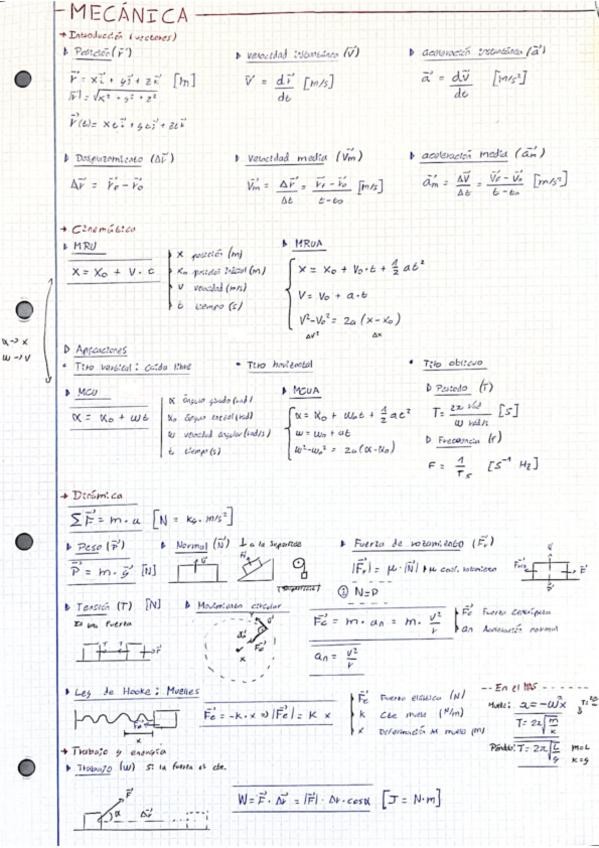 MECÁNICA
→ Introducción (vectores)
Posición (r⃗)
r⃗ = xi⃗ + yj⃗ + zk⃗ [m]
|r⃗| = √x² + y² + z²
r⃗(t) = xti⃗ + ytj⃗ + ztk⃗
velocidad instantánea (v⃗)
v⃗ = dr⃗/dt [m/s]
aceleración instantánea (a⃗)
a⃗ = dv⃗/dt [m/s²]
Desplazamiento (Δr⃗)
Δr⃗ = r⃗F - r⃗0
Velocidad media (v⃗m)
v⃗m = Δr⃗/Δt = r⃗F - r⃗0/t - t0 [m/s]
aceleración media (a⃗m)
a⃗m = Δv⃗/Δt = v⃗F - v⃗0/t - t0 [m/s²]
→ Cinemática
MRU
x = x0 + v · t
x posición (m)
x0 posición inicial (m)
v velocidad (m/s)
t tiempo (s)
MRUA
x = x0 + v0·t + 1/2 at²
v = v0 + a·t
v² - v0² = 2a (x - x0)
Δv² Δx
α → x
ω → v
Aplicaciones
• Tiro vertical: Caída libre
• Tiro horizontal
• Tiro oblicuo
MCU
α = α0 + ωt
α ángulo girado (rad)
α0 ángulo inicial (rad)
ω velocidad angular (rad/s)
t tiempo (s)
MCUA
α = α0 + ω0t + 1/2 at²
ω = ω0 + at
ω² - ω0² = 2a (α - α0)
Periodo (T)
T = 2π rad/ω rad/s [s]
Frecuencia (F)
F = 1/T s [s⁻¹ Hz]
→ Dinámica
ΣF⃗ = m · a [N = kg · m/s²]
Peso (P⃗)
P⃗ = m · g⃗ [N]
Normal (N⃗) ⊥ a la superficie
(superficie)
Fuerza de rozamiento (F⃗r)
|F⃗r| = μ · |N⃗| μ coef. rozamiento
① N = P
Tensión (T) [N]
Es una fuerza
Movimiento circular
F⃗c = m · an = m · v²/r
an = v²/r
F⃗c Fuerza centrípeta
an Aceleración normal
Ley de Hooke: Muelles
F⃗e = -k · x ⇒ |F⃗e| = k x
F⃗e Fuerza elástica (N)
k Cte muelle (N/m)
x Deformación del muelle (m)
En el MAS
Muelle: a = -ω²x
T = 2π√m/k
Péndulo: T = 2π√L/g
m=L
k=g
→ Trabajo y energía
Trabajo (W) Si la fuerza es cte.
W = F⃗ · Δr⃗ = |F⃗| · Δr · cosα [J = N·m]